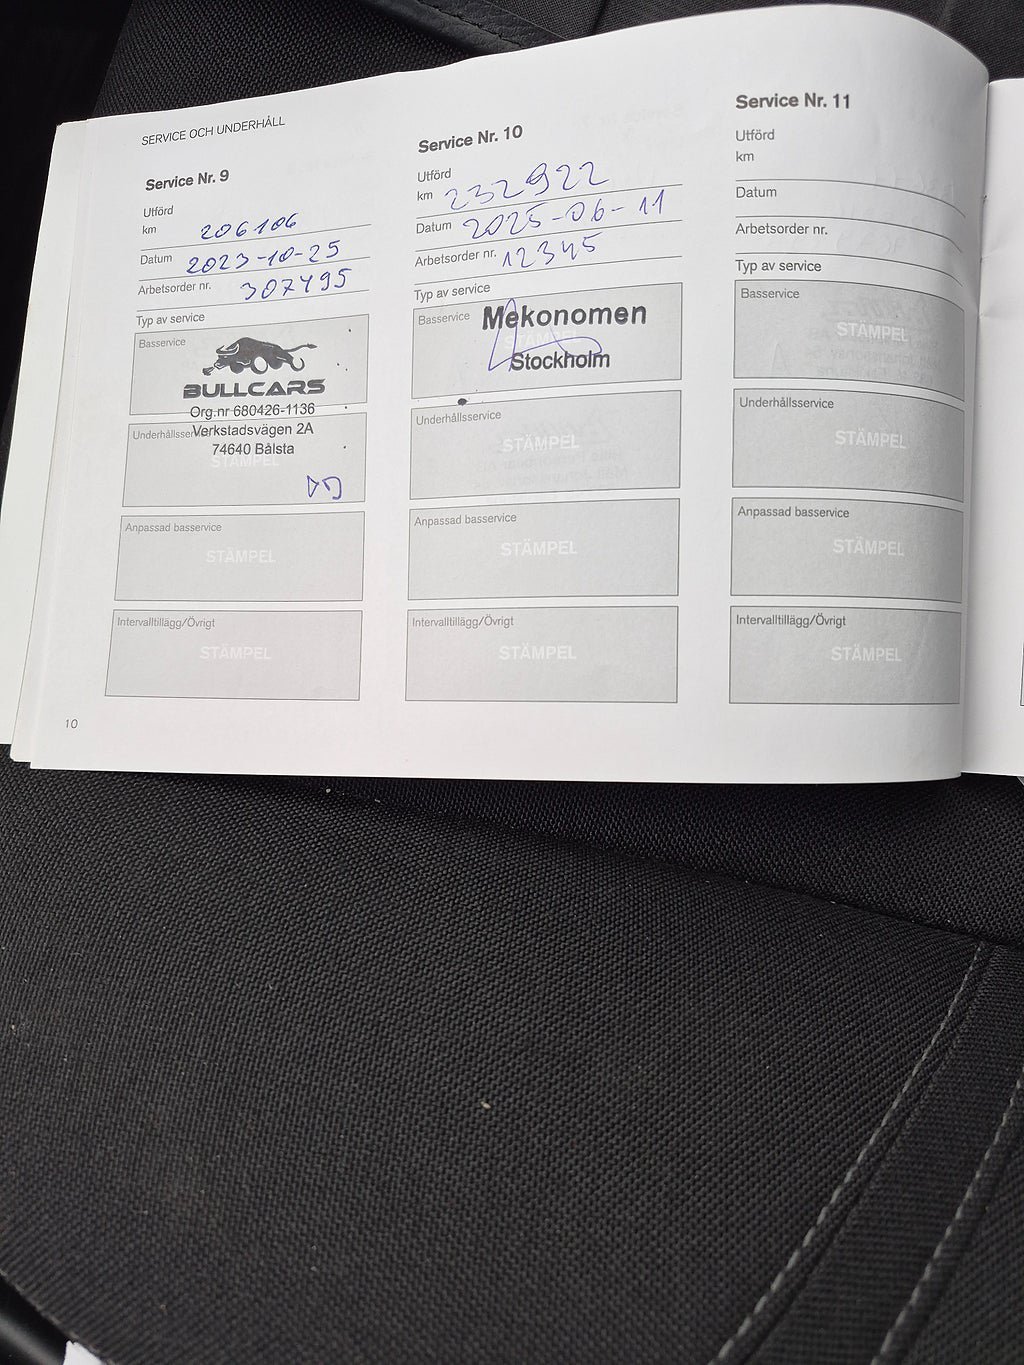 SERVICE OCH UNDERHÅLL
Service Nr. 9
Utförd
km 206106
Datum 2023-10-25
Arbetsorder nr. 307495
Typ av service
Basservice
BULLCARS
Org.nr 680426-1136
Verkstadsvägen 2A
74640 Bålsta
Underhållsservice
STÄMPEL
Anpassad basservice
STÄMPEL
Intervalltillägg/Övrigt
STÄMPEL
Service Nr. 10
Utförd
km 232922
Datum 2025-06-11
Arbetsorder nr. 12345
Typ av service
Basservice
STÄMPEL
Mekonomen
Stockholm
Underhållsservice
STÄMPEL
Anpassad basservice
STÄMPEL
Intervalltillägg/Övrigt
STÄMPEL
Service Nr. 11
Utförd
km
Datum
Arbetsorder nr.
Typ av service
Basservice
STÄMPEL
Underhållsservice
STÄMPEL
Anpassad basservice
STÄMPEL
Intervalltillägg/Övrigt
STÄMPEL
10